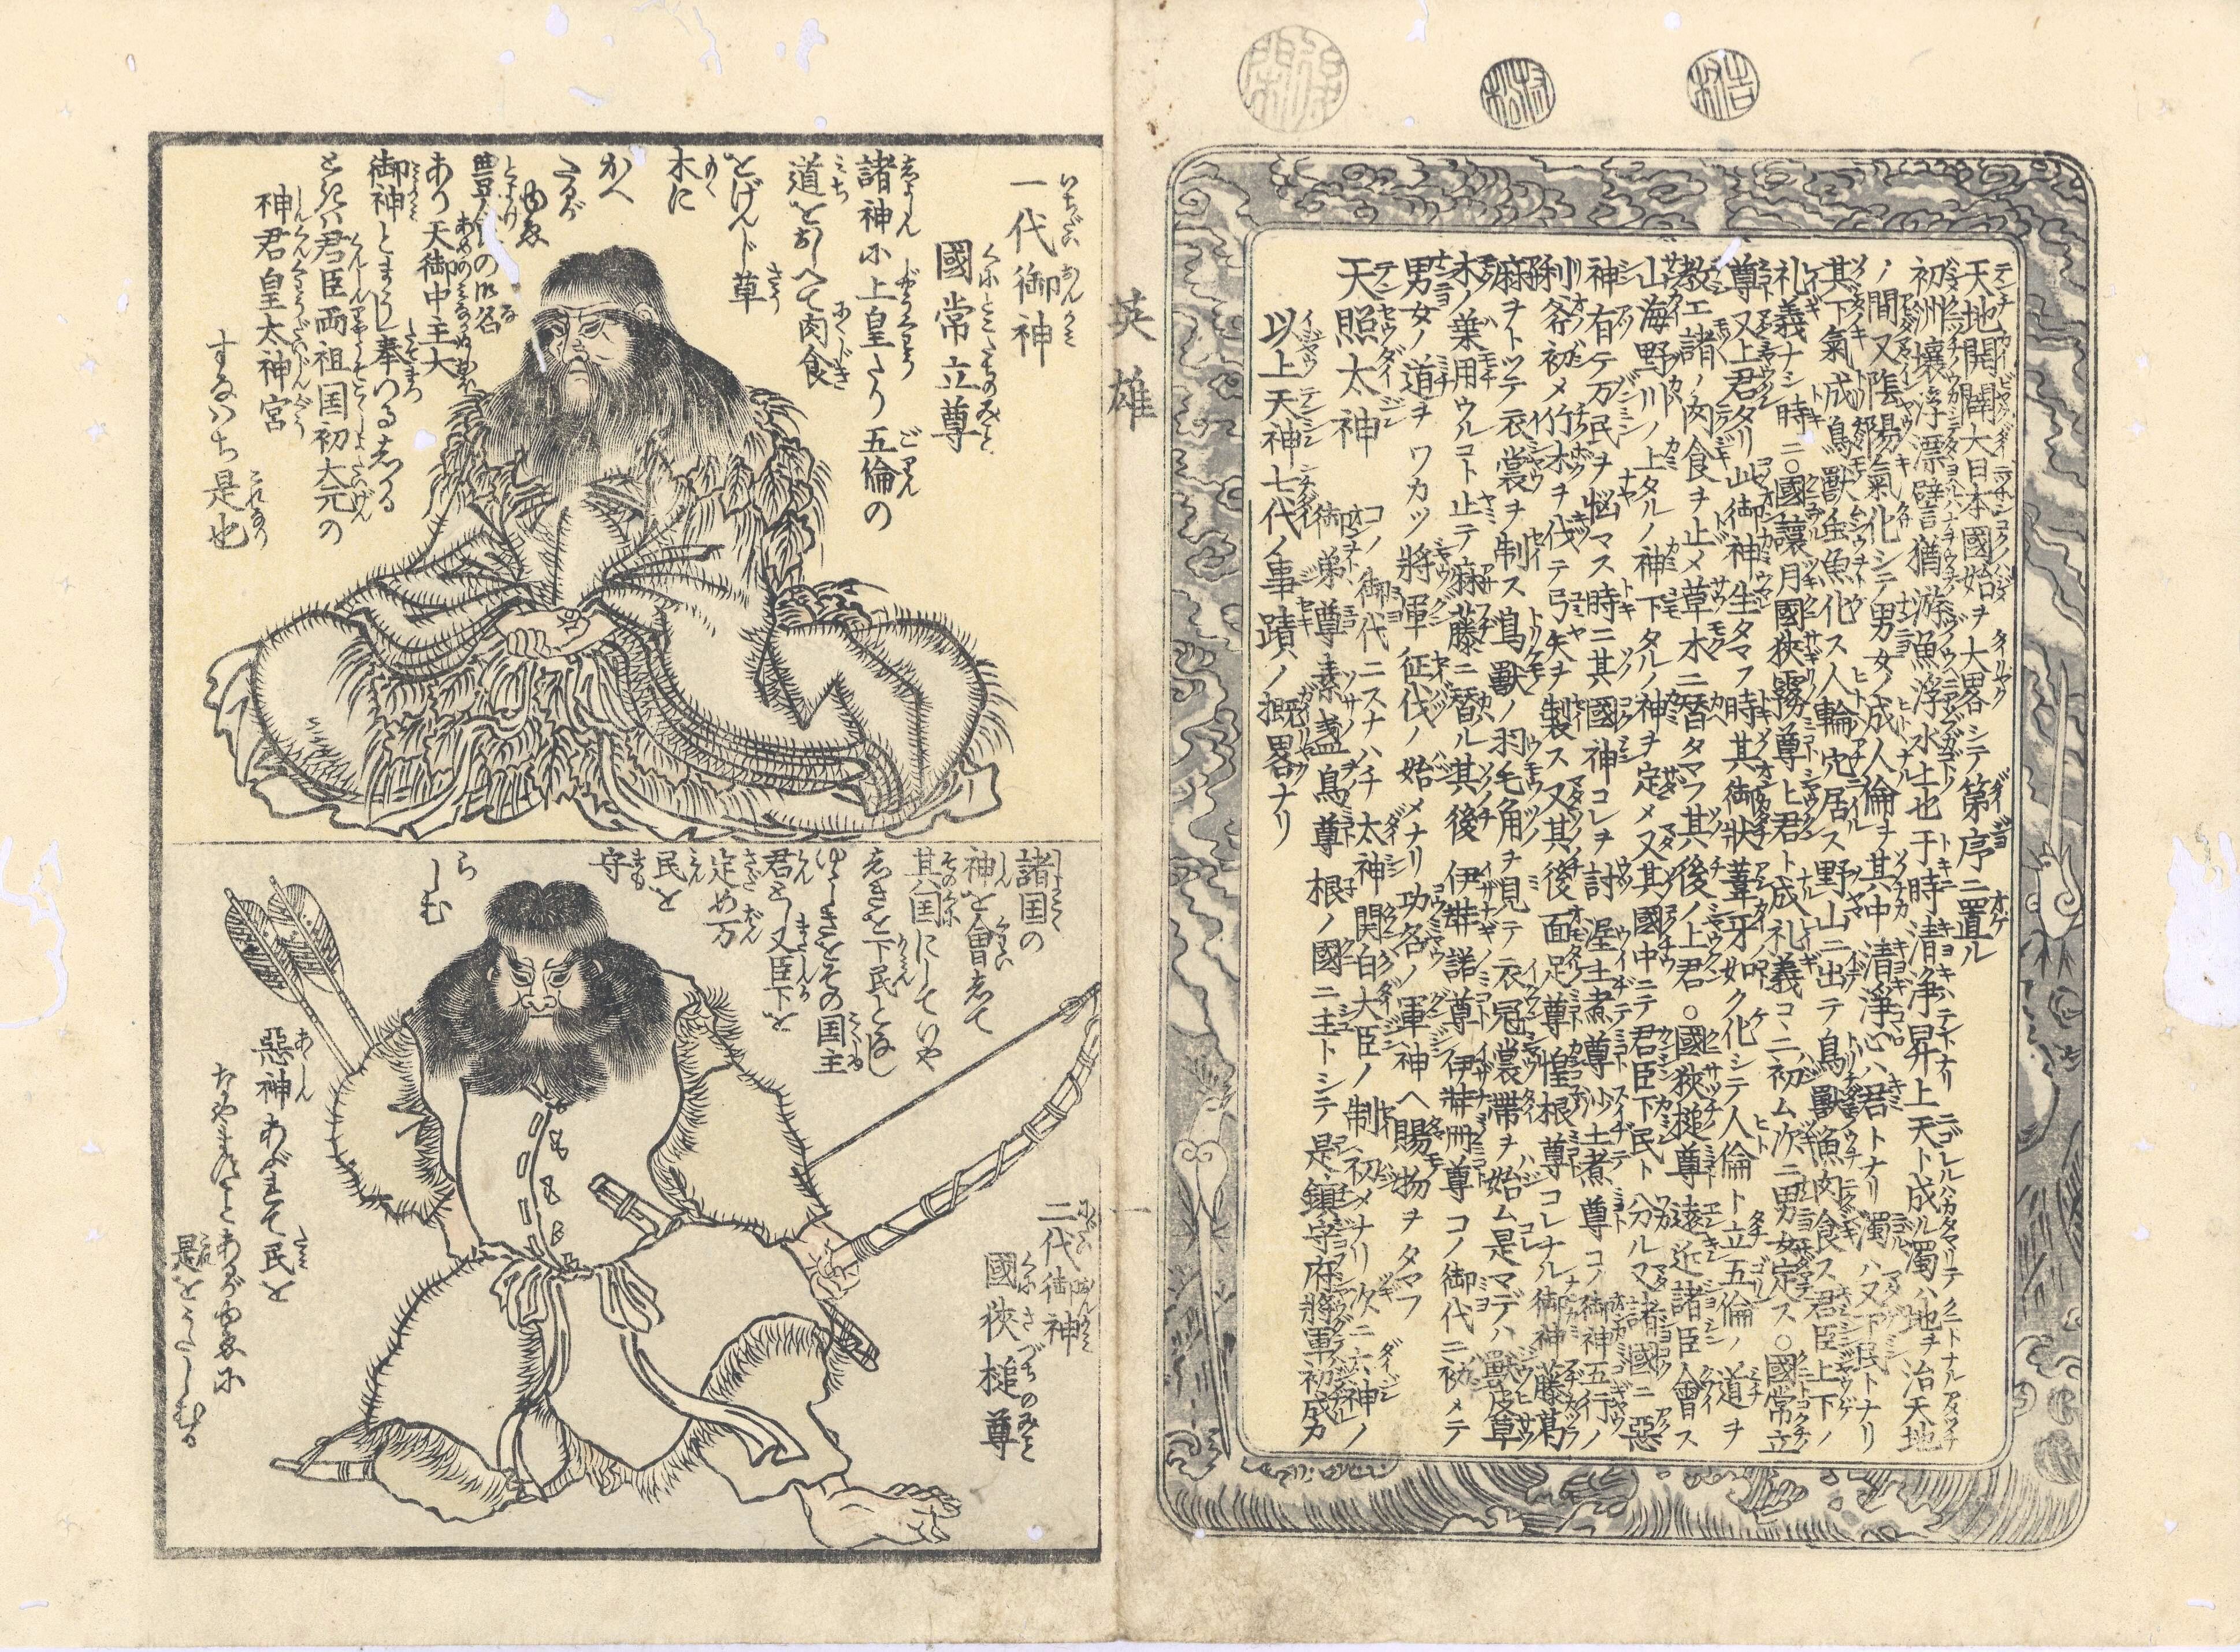 天地開闢大日本國始ヲ大畧シテ第序ニ置ル
初洲壤浮漂譬言猶游魚浮水上也于時清浄昇上天ト成ル濁ハ地ヲ治天地
ノ間又陰陽氣化シテ男女ノ成人倫ヲ其中清浄心ハ君トナリ濁ハ又下民トナリ
其下氣成鳥獣虫魚化ス人輪穴居ス野山ニ出テ鳥獣漁肉食ス君臣上下ノ
礼義ナシ時ニ○國讓月國狭霧尊上君ト成礼義コニ初ム次ニ男女定ス○國常立
尊又上君タリ此御神生タマフ時其御状葦牙如ク化シテ人倫ト立五倫ノ道ヲ
教エ諸ノ肉食ヲ止メ草木ニ替タマフ其後ノ上君○國狭槌尊遠近諸臣會ス
山海野川ノ上タルノ神下タルノ神ヲ定メ又其國中ニテ君臣下民ト分ルマ諸國ニ惡
神有テ万民ヲ悩マス時ニ其國神コレヲ討渥土煮尊沙土煮尊コノ御神五行ノ
利斧初メ竹木ヲ伐テ弓矢ヲ製ス又其後面足尊惶根尊コレナル御神藤葛
麻ヲトツテ衣裳ヲ制ス鳥獣ノ羽毛角ヲ見テ衣冠裳帯ヲ始ム是マデハ獣皮草
木ノ葉用ウルコト止テ麻藤ニ替ル其後伊弉諾尊伊弉冊尊コノ御代ニ初メテ
男女ノ道ヲワカツ將軍征伐ノ始メナリ功名ノ軍神ヘ賜物ヲタマフ
天照太神 コノ御代ニスナハチ太神関白大臣ノ制初メナリ次ニ六神ノ
御弟尊素盞烏尊根ノ國ニ主トシテ是鎮守府將軍初成カ
以上天神七代ノ事蹟ノ概畧ナリ
英雄
一
一代御神
國常立尊
諸神の上皇たり五倫の
道をおしへて肉食
とげんじ草
木に
かへ
たるが
ゆゑ
豊食の御名
あり天御中主大
御神とまうし奉つるしかる
ときハ君臣両祖国初大元の
神君皇太神宮
すなハち是也
二代御神
國狭槌尊
諸国の
神を會して
其国にしていや
しきを下民となし
ゆうきをその国主
君とし又臣下を
定め万
民を
守
らしむ
惡神あらそて民を
なやますことあるがゆゑに
是をうたしむる